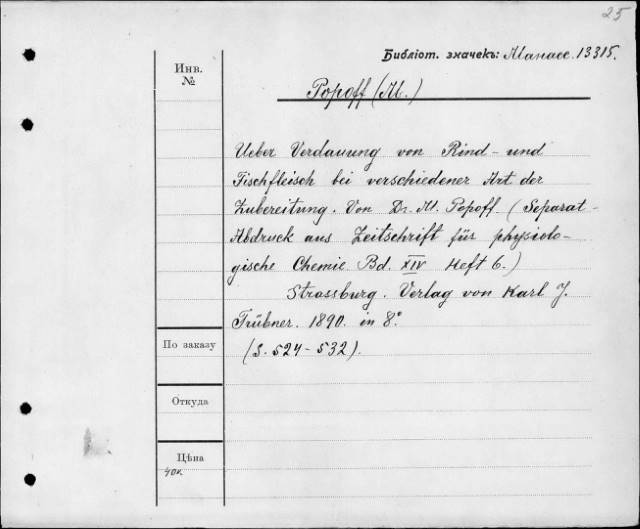 25
Библіот. значекъ: Манасс. 13315.
Инв.
№
Popoff (M.)
Ueber Verdauung von Rind- und
Fischfleisch bei verschiedener Art der
Zubereitung. Von Dr. M. Popoff. (Separat-
Abdruck aus Zeitschrift für physiolo-
gische Chemie Bd. XIV Heft 6.)
Strassburg. Verlag von Karl J.
Trübner. 1890. in 8°
(S. 524-532).
По заказу
Откуда
Цѣна
40к